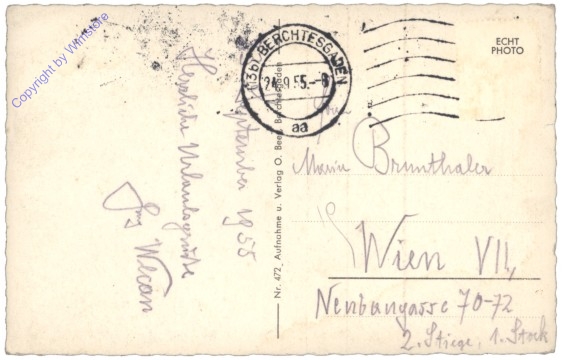 September 1955
Herzliche Urlaubsgrüße
Wecan
Copyright by Winistore
(13b) BERCHTESGADEN
9.55.-8
aa
ECHT
PHOTO
Nr. 472, Aufnahme u. Verlag O. Beer, Berchtesgaden
Frau
Maria Brunthaler
Wien VII,
Neubaugasse 70-72
2. Stiege, 1. Stock